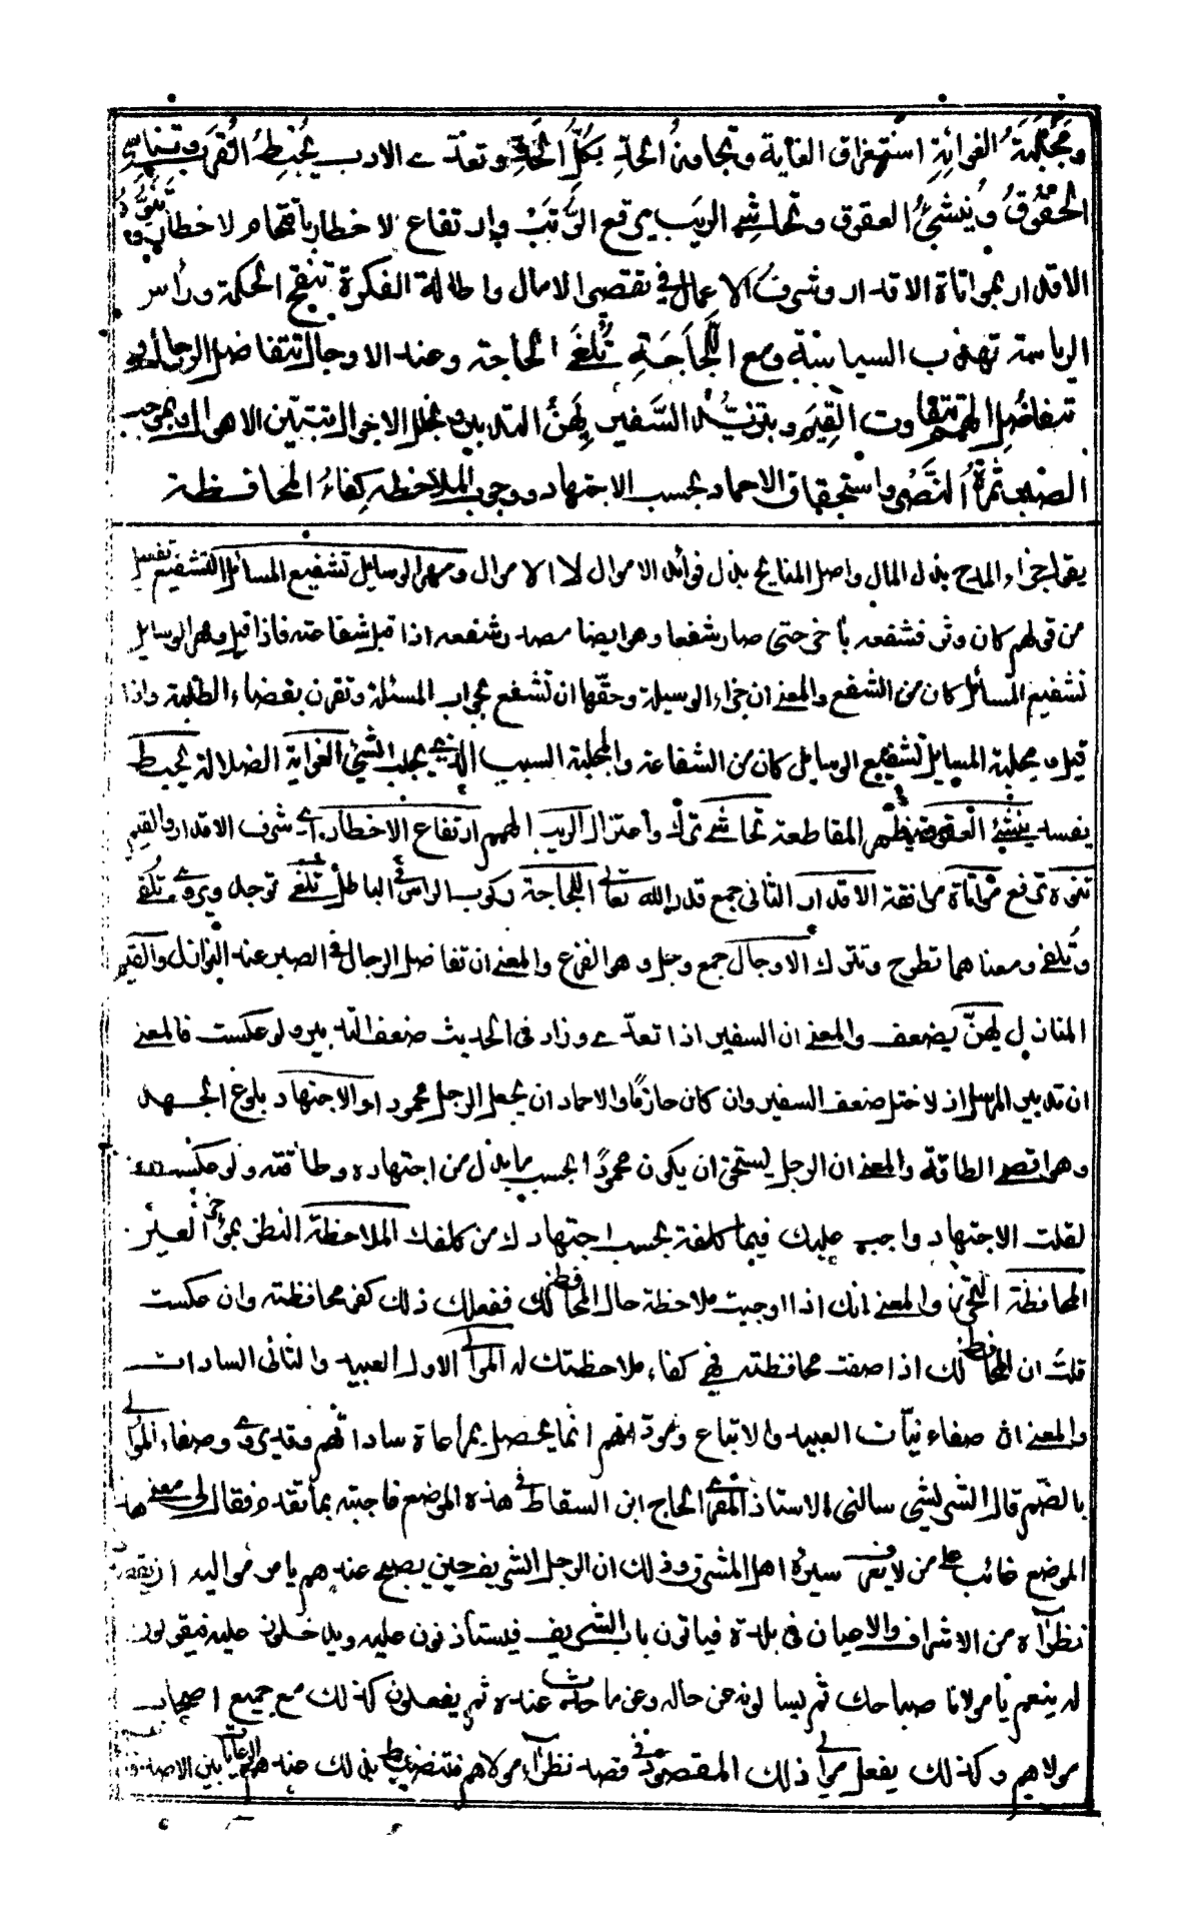 ومَجْلَبَةُ الغَوايَةِ استغراق الغاية وتجاوزُ الحدِّ يُكِلُّ الحَدَّ وتعدّي الادب يُحْبِطُ القُرَبَ وتناسي
الحقوقِ يُنشِئُ العقوق وتحاشي الريَب يرفع الرُّتَبَ وارتفاع الاخطار باقتحام الاخطار وتنوُّهُ
الاقدار بمواتاة الاقدار وشرفُ الاعمال في تقصير الامال واطالة الفكرة تنقيح الحكمة ورأس
الرياسة تهذيب السياسة ومع اللَّجاجَةِ تُلْغَى الحاجة وعند الاوجال تتفاضل الرجال و
بتفاضُلِ الهمم تتفاوت القِيَم وبتزيُّد السَّفير يَهِنُ التدبير وبخلل الاحوال تتبيّن الاهوال وبموجب
الصبر ثمرةُ النَّصْر واستحقاق الاحماد بحسب الاجتهاد ووجوب الملاحظة كِفاءُ المحافظة
يقول جزاء المدح بذل المال واصل المنايح بذل فوائد الاموال لا الاموال ومهر الوسايل تشفيع المسائل التشفيع تفعيل
من قولهم كان وتر فشفعه بآخر حتى صار شفعا وهو ايضا مصدر شفعه اذا قبل شفاعته فاذا قيل ومهر الوسايل
تشفيع المسائل كان من الشفع والمعنى ان جزاء الوسيلة وحقّها ان تشفع بجواب المسئلة وتقرن بقضاء الطلبة واذا
قيل ومجلبة المسايل تشفيع الوسايل كان من الشفاعة والمجلبة السبب الذي يجلب الشيئ الغواية الضلالة يحبط
يفسد ينشئ العقوق يظهر المقاطعة تحاشي ترك واعتزال الريب الهمم ارتفاع الاخطار اي شرف الاقدار والقيم
تنوه ترفع مواتاة موافقة الاقدار الثاني جمع قدر الله تعالى اللجاجة ركوب الراس في الباطل تلغى توجد ويروى تُلْقَى
وتُلغى ومعناهما تطرح وتترك الاوجال جمع وجل وهو الفزع والمعنى ان تفاضل الرجال في الصبر عند النوازل والقيم
المنازل يهن يضعف والمعنى ان السفير اذا تعدّى وزاد في الحديث ضعف التدبير ولو عكست فالمعنى
ان تدبير المرسل اذ لا ختل ضعف السفير وان كان حازمًا والاحماد ان يجعل الرجل محمودا والاجتهاد بلوغ الجهد
وهو اقصى الطاقة والمعنى ان الرجل يستحق ان يكون محمودًا بحسب ما بذل من اجتهاده وطاقته ولو عكست
لقلت الاجتهاد واجب عليك فيما كلفته بحسب اجتهاد لا من كلفك الملاحظة النظر بمؤخر العين
المحافظة التحرّز والمعنى انك اذا اوجبت ملاحظة حال المحافظ لك ففعلك ذلك كفى محافظته وان عكست
قلت ان المحافظ لك اذا صفت محافظته فهي كفاء ملاحظتك له الموالي الاول العبيد والثاني السادات
والمعنى ان صفاء نيّات العبيد والاتباع ومودّتهم انما يحصل بمراعاة ساداتهم وقد يروى وصفاء الموالي
بالضم قال الشريشي سالني الاستاذ المقرئ الحاج ابن السقاط في هذه الموضع فاجبته بما تقدم فقال لي معنى هذا
الموضع غائب على من لا يعرف سيرة اهل المشرق وذلك ان الرجل الشريف حين يصبح عندهم يامر مواليه ان
نظرآءه من الاشراف والاعيان في بلدة فياتون باب الشريف فيستأذنون عليه ويدخلون عليه فيقولون
له ينعم يا مولانا صباحك ثم يسالونه عن حاله وعن ما حدث عنده ثم يفعلون كذلك مع جميع اصحاب
مولاهم وكذلك يفعل موالي ذلك المقصود في قصد نظرآء مولاهم بذلك عندهم بين